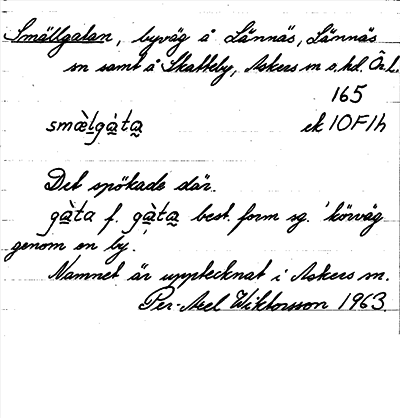 Smällgatan, byväg å Lännäs, Lännäs
sn samt å Skatteby, Askers sn o. hd. Ör. l.
165
smæ̀lgàta ek 10F1h
Det spökade där.
gàta f. gàta best. form sg. 'körväg
genom en by'.
Namnet är upptecknat i Askers sn.
Per-Axel Wiktorsson 1963.